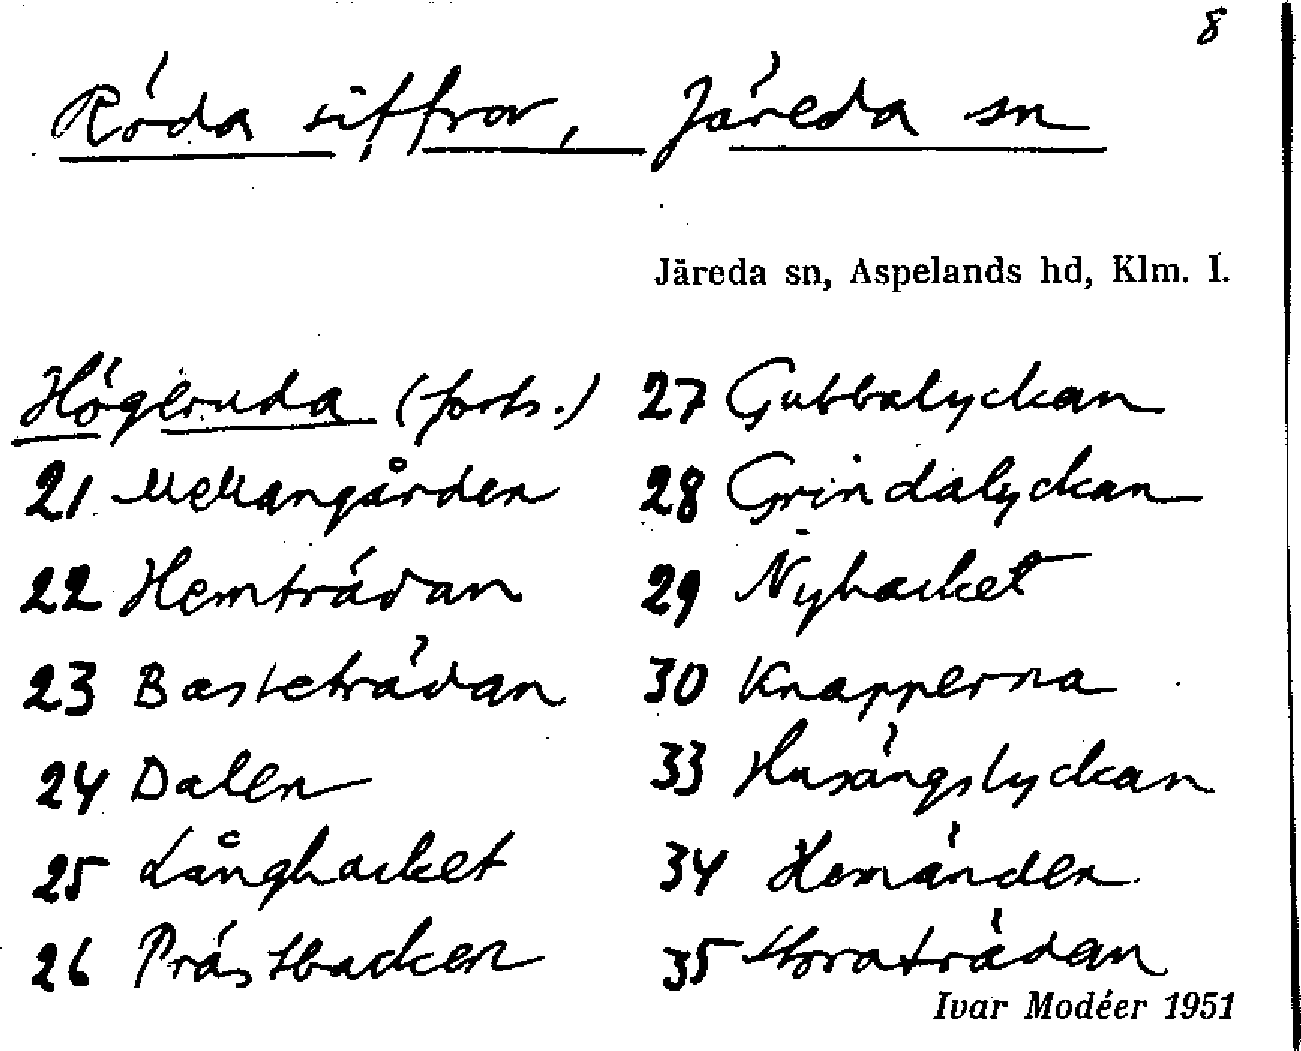 8
Röda siffror, Järeda sn
Järeda sn, Aspelands hd, Klm. l.
Högeruda (forts.)
21 Mellangården
22 Hemträdan
23 Basteträdan
24 Dalen
25 Långhacket
26 Prästbacken
27 Gubbalyckan
28 Grindalyckan
29 Nyhacket
30 Knapperna
33 Husängslyckan
34 Hemänden
35 Storaträdan
Ivar Modéer 1951